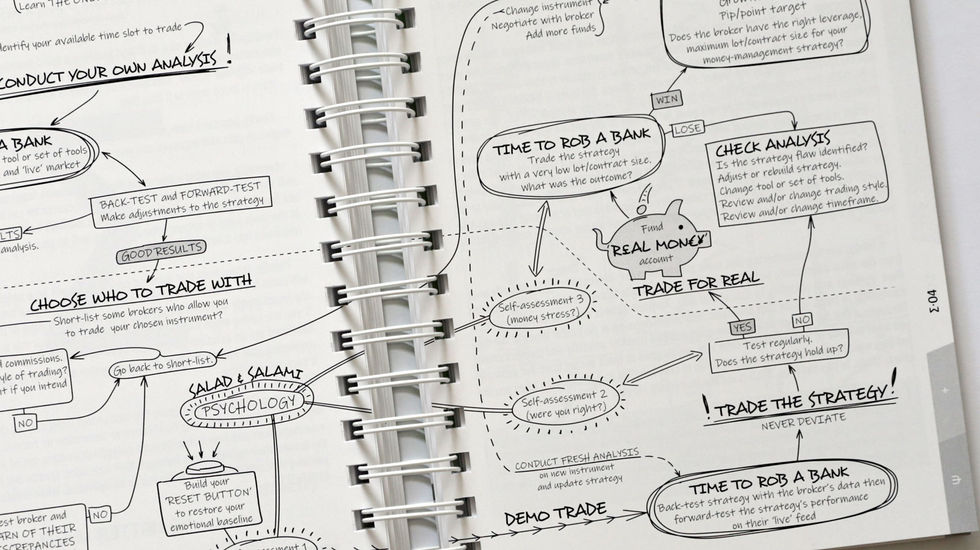 Learn THE
Identify your available time slot to trade
CONDUCT YOUR OWN ANALYSIS !
A BANK
tool or set of tools
and 'live' market
BACK-TEST and FORWARD-TEST
Make adjustments to the strategy
analysis.
GOOD RESULTS
CHOOSE WHO TO TRADE WITH
Short-list some brokers who allow you
to trade your chosen instrument?
commissions.
style of trading?
if you intend
NO
Go back to short-list.
SALAD & SALAMI
PSYCHOLOGY
Build your
'RESET BUTTON'
to restore your
emotional baseline
broker and
OF THEIR
NO
1
Change instrument
Negotiate with broker
Add more funds
Pip/point target
Does the broker have the right leverage,
maximum lot/contract size for your
money-management strategy?
WIN
LOSE
TIME TO ROB A BANK
Trade the strategy
with a very low lot/contract size.
What was the outcome?
CHECK ANALYSIS
Is the strategy flaw identified?
Adjust or rebuild strategy.
Change tool or set of tools.
Review and/or change trading style.
Review and/or change timeframe.
Fund
REAL MONEY
account
TRADE FOR REAL
Self-assessment 3
(money stress?)
YES
NO
Test regularly.
Does the strategy hold up?
Self-assessment 2
(were you right?)
! TRADE THE STRATEGY !
NEVER DEVIATE
CONDUCT FRESH ANALYSIS
on new instrument
and update strategy
DEMO TRADE
TIME TO ROB A BANK
Back-test strategy with the broker's data then
forward-test the strategy's performance
on their 'live' feed
Σ04
Ψ